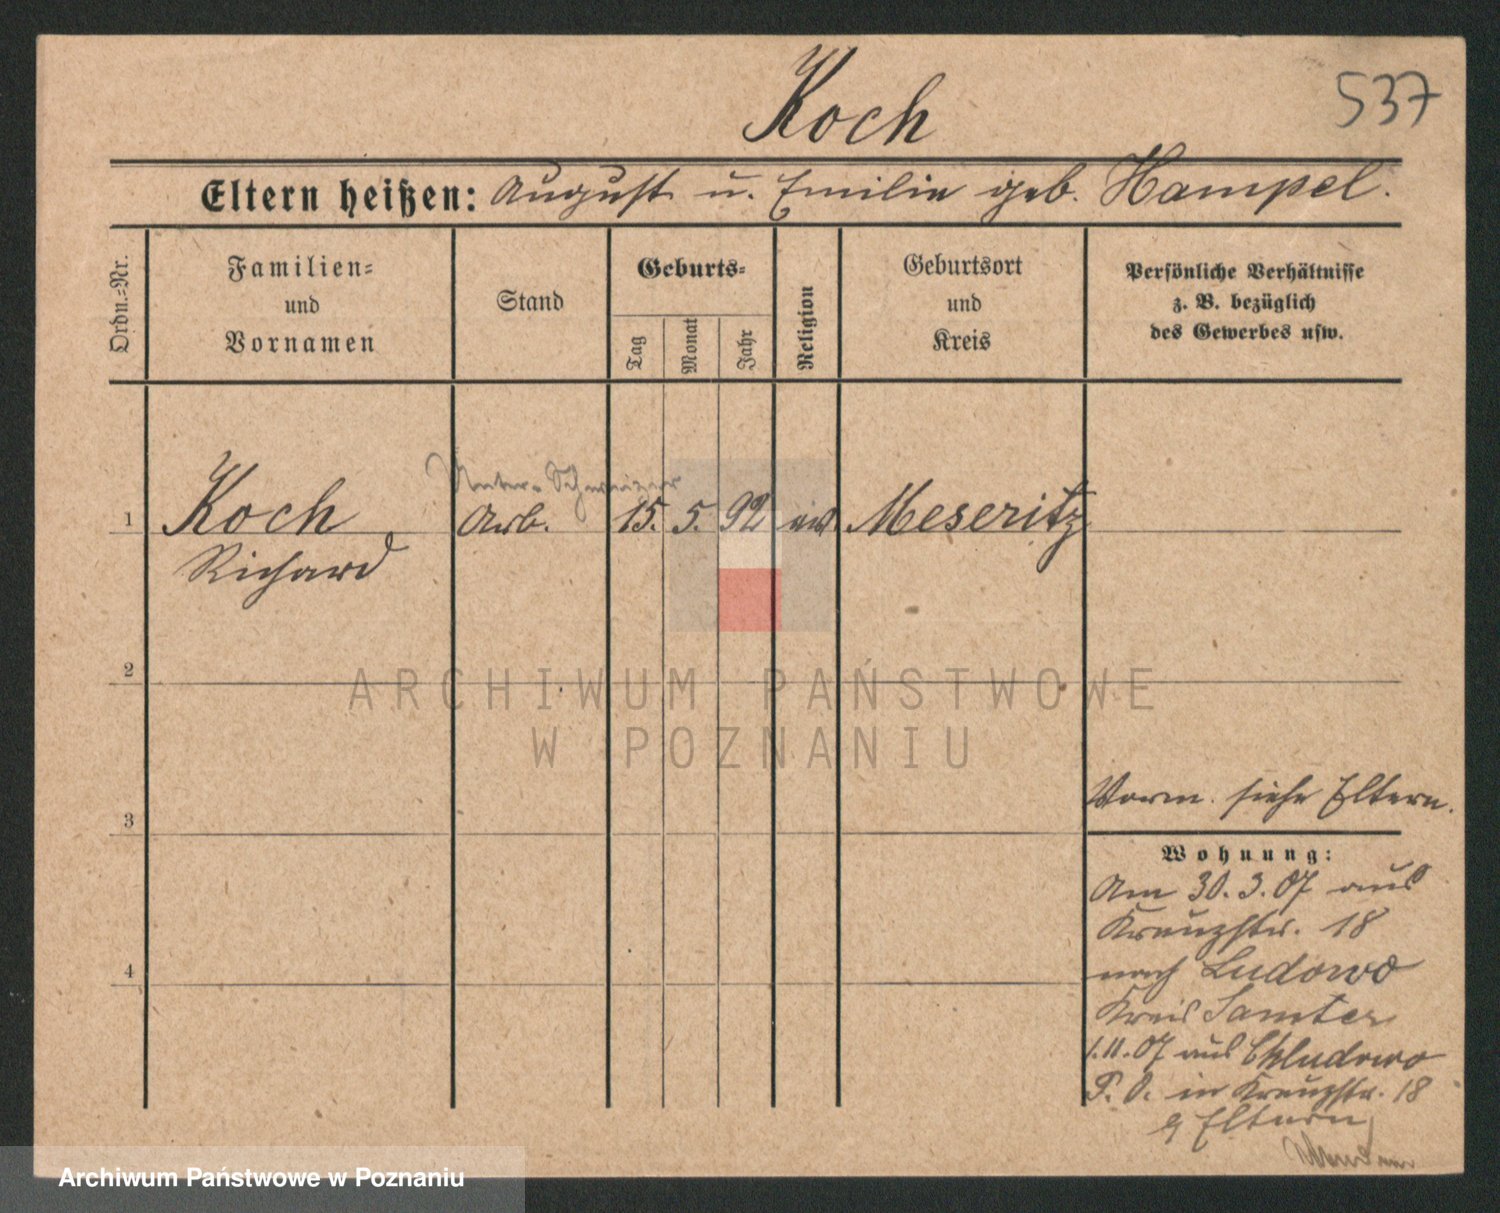 Koch
537
Eltern heißen: August u. Emilie geb. Hampel.
Ordn.-Nr.
Familien-
und
Vornamen
Stand
Geburts-
Tag
Monat
Jahr
Religion
Geburtsort
und
Kreis
Persönliche Verhältnisse
z. B. bezüglich
des Gewerbes usw.
Unter-Schweizer
1 Koch Arb. 15. 5. 92 ev. Meseritz
Richard
2
ARCHIWUM PAŃSTWOWE
W POZNANIU
Vorm. siehe Eltern.
3
Wohnung:
Am 30. 3. 07 aus
Kreuzstr. 18
nach Ludowo
4
Kreis Samter
1.11.07 aus Chludowo
P. O. in Kreuzstr. 18
Eltern
Archiwum Państwowe w Poznaniu